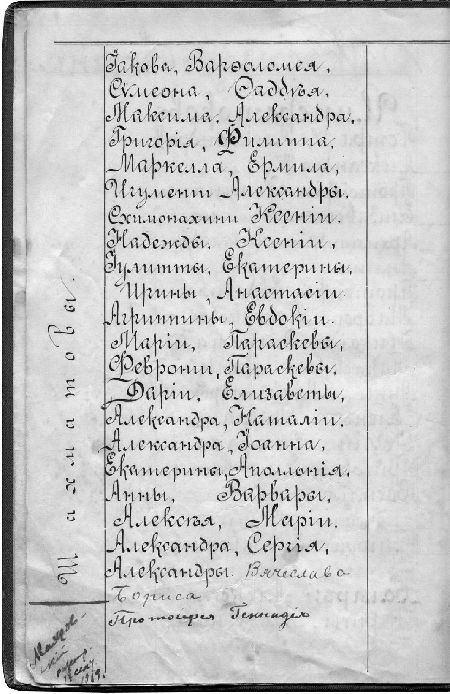 Іакова, Варѳоломея,
Сѵмеона, Ѳаддѣя,
Максима, Александра,
Григорія, Филиппа,
Маркелла, Ермила,
Игуменіи Александры.
Схимонахини Ксеніи.
Надежды. Ксеніи,
Іулитты, Екатерины,
Ирины, Анастасіи
Агриппины, Евдокіи.
Маріи, Параскевы,
Февроніи, Параскевы.
Даріи, Елизаветы,
Александра, Наталіи.
Александра, Іоанна,
Екатерины, Аполлонія,
Анны, Варвары,
Алексѣя, Маріи.
Александра, Сергія,
Александры. Вячеслава
Бориса
Протоиерея Геннадія
Шахматовы.